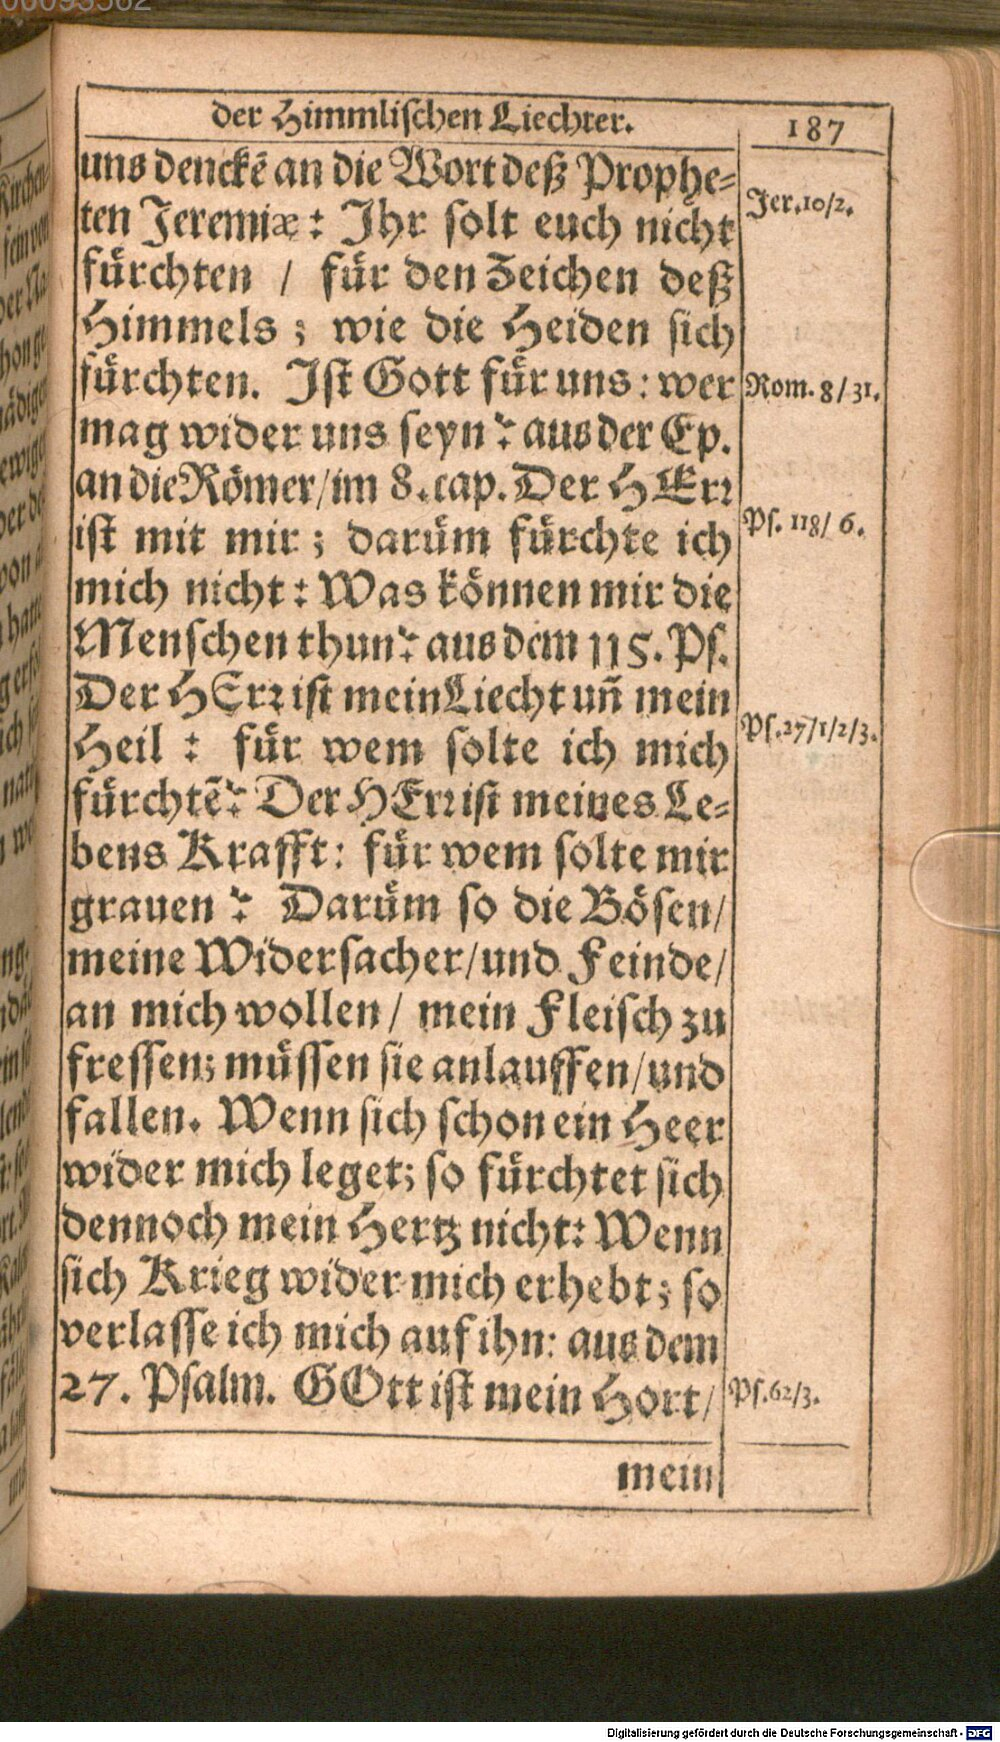 der Himmlischen Liechter.
187
uns denckē an die Wort deß Prophe-
ten Jeremiæ: Ihr solt euch nicht
fürchten / für den Zeichen deß
Himmels; wie die Heiden sich
fürchten. Ist Gott für uns: wer
mag wider uns seyn? aus der Ep.
an die Römer/im 8. cap. Der HErr
ist mit mir; darüm fürchte ich
mich nicht: Was können mir die
Menschen thun? aus dem 115. Ps.
Der HErr ist mein Liecht uñ mein
Heil: für wem solte ich mich
fürchtē? Der HErr ist meines Le-
bens Krafft: für wem solte mir
grauen? Darüm so die Bösen/
meine Widersacher/und Feinde/
an mich wollen/ mein Fleisch zu
fressen; müssen sie anlauffen/und
fallen. Wenn sich schon ein Heer
wider mich leget; so fürchtet sich
dennoch mein Hertz nicht: Wenn
sich Krieg wider mich erhebt; so
verlasse ich mich auf ihn: aus dem
27. Psalm. GOtt ist mein Hort/
mein
Jer.10/2.
Rom. 8/31.
Ps. 118/ 6.
Ps.27/1/2/3.
Ps.62/3.
Digitalisierung gefördert durch die Deutsche Forschungsgemeinschaft - DFG